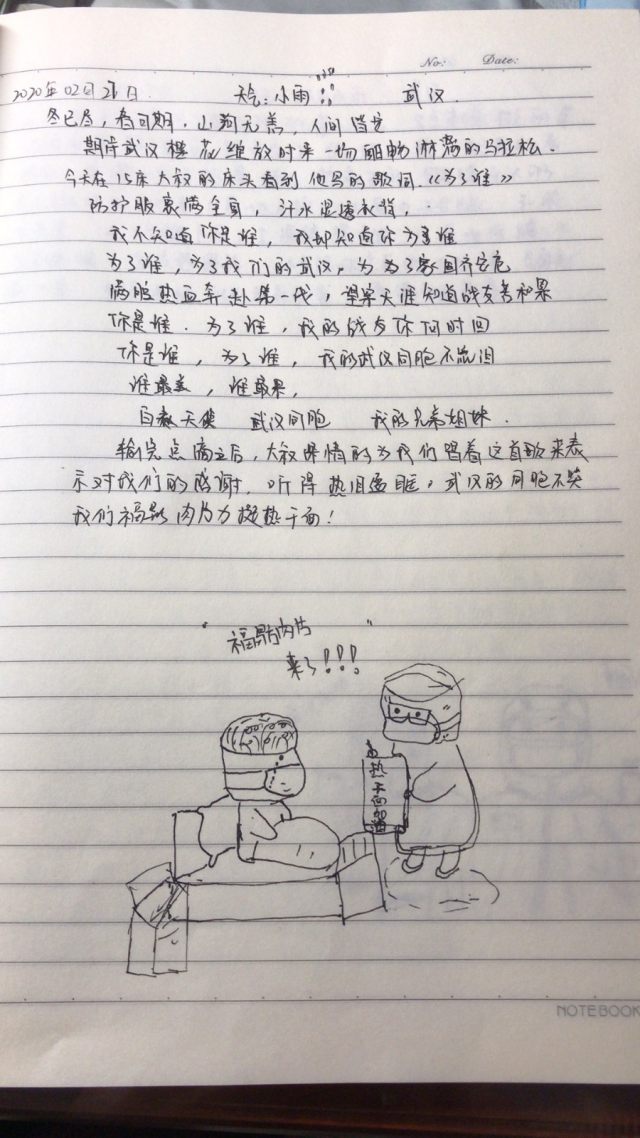 No: Date:
2020年02月21日 天气:小雨 武汉.
冬已尽,春可期,山河无恙,人间皆安
期待武汉樱花绽放时来一场酣畅淋漓的马拉松.
今天在15床大叔的床头看到他写的歌词《为了谁》
防护服裹满全身,汗水湿透衣背,
我不知道你是谁,我却知道你为了谁
为了谁,为了我们的武汉,为了家国齐安危
满腔热血奔赴第一线,望穿天涯知道战友害和累
你是谁.为了谁,我的战友你何时回
你是谁,为了谁,我的武汉同胞不流泪
谁最美,谁最累,
白衣天使 武汉同胞 我的兄弟姐妹.
输完点滴之后,大叔深情的为我们唱着这首歌来表
示对我们的感谢.听得热泪盈眶,武汉的同胞不哭
我们福鼎肉片力挺热干面!
"福鼎肉片
来了!!!"
热干面
NOTEBOOK